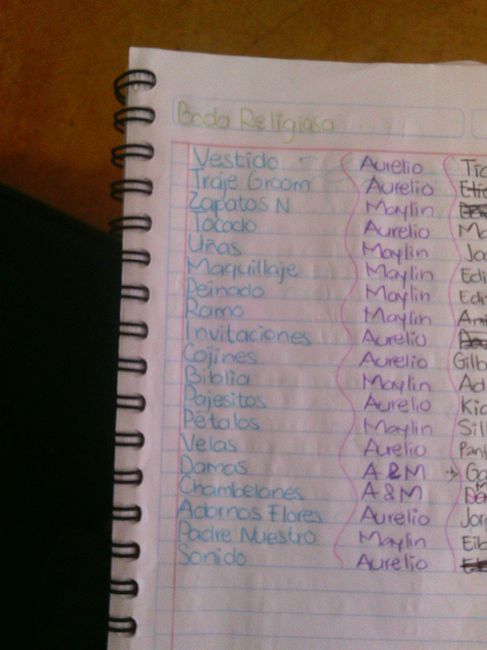 Boda Religiosa
Vestido Aurelio
Traje Groom Aurelio
Zapatos N Maylin
Tocado Aurelio Ma
Uñas Maylin
Maquillaje Maylin Edi
Peinado Maylin Edi
Ramo Maylin
Invitaciones Aurelio
Cojines Aurelio Gilb
Biblia Maylin Ad
Pajesitos Aurelio
Pétalos Maylin Sil
Velas Aurelio
Damas A & M → Ga
Chambelones A & M
Adornos Flores Aurelio Jor
Padre Nuestro Maylin Eib
Sonido Aurelio